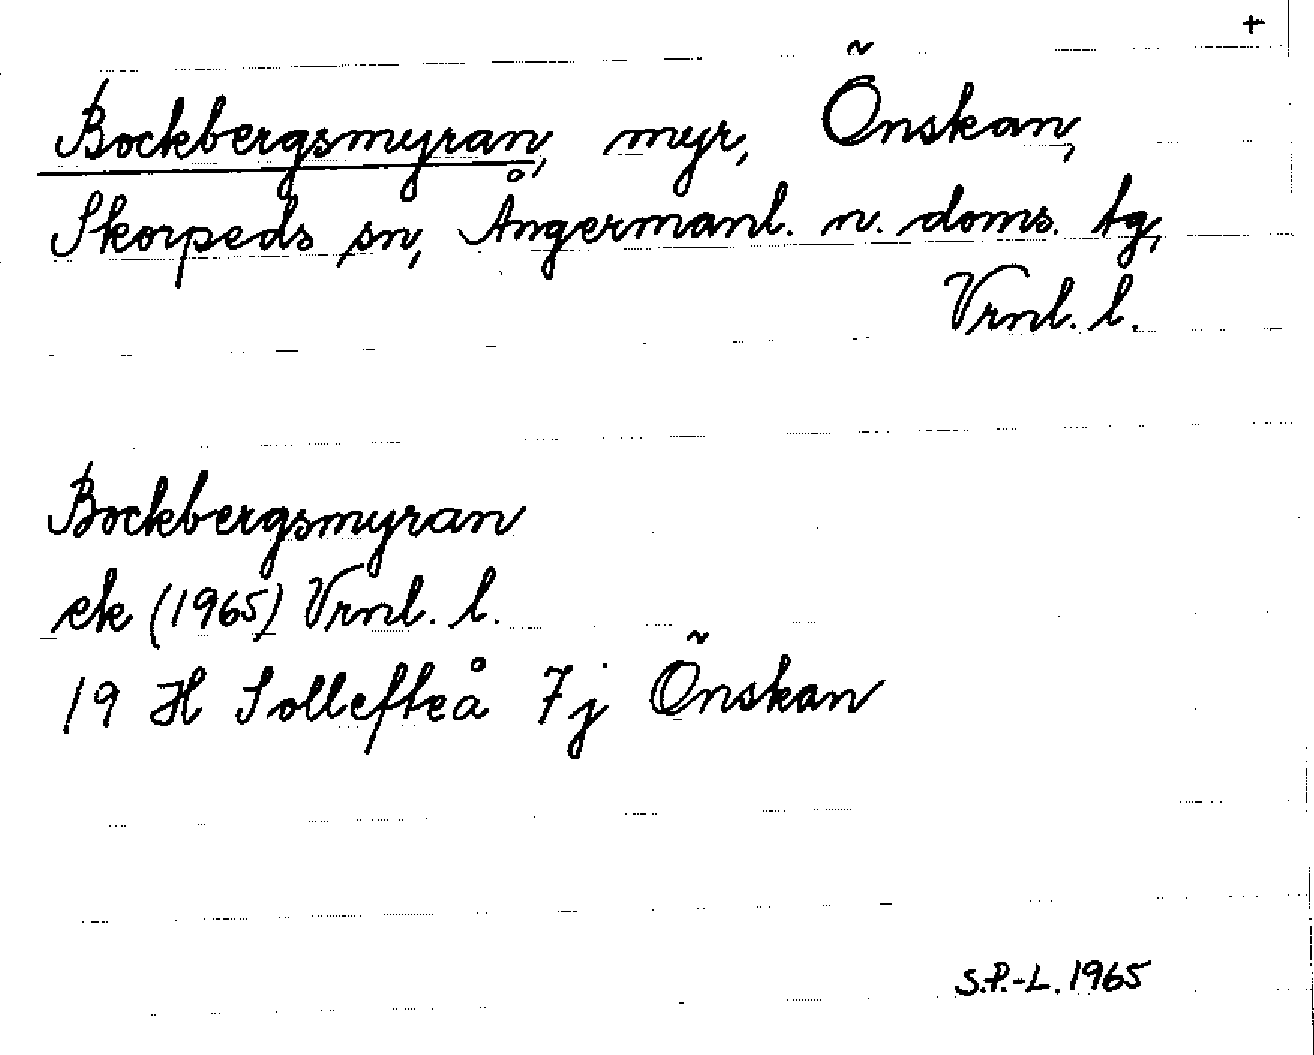 +
Bockbergsmyran, myr, Önskan,
Skorpeds sn, Ångermanl. n. doms. tg,
Vrnl. l.
Bockbergsmyran
ek (1965) Vrnl. l.
19 H Sollefteå 7j Önskan
S.P.-L. 1965